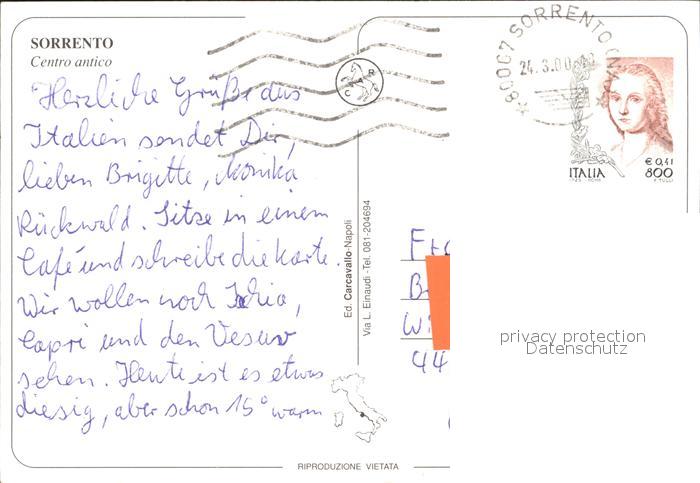 SORRENTO
Centro antico
Herzliche Grüße aus
Italien sendet Dir,
lieben Brigitte, Monika
Rückwald. Sitze in einem
Café und schreibe die Karte.
Wir wollen noch Ischia,
Capri und den Vesuv
sehen. Heute ist es etwas
diesig, aber schon 15° warm
C A R
Ed. Carcavallo-Napoli
Via L. Einaudi -Tel. 081-204694
80067 SORRENTO (NA)
24.3.00
€ 0,41
ITALIA 800
44
privacy protection
Datenschutz
RIPRODUZIONE VIETATA